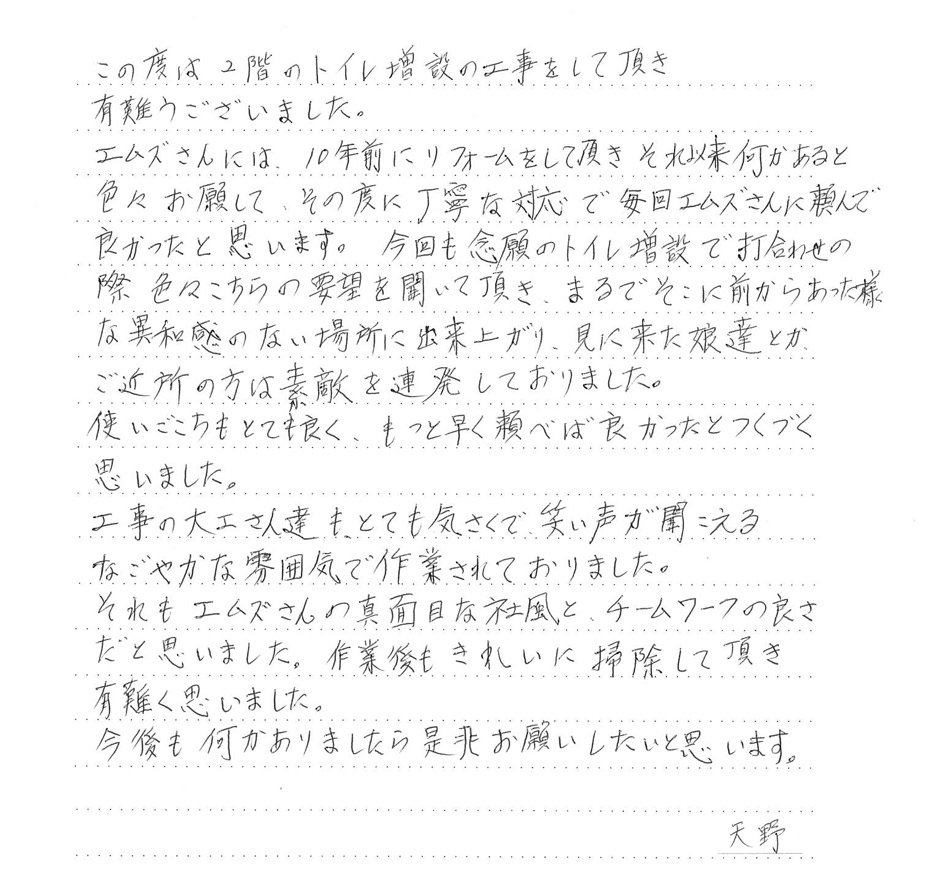 この度は2階のトイレ増設の工事をして頂き
有難うございました。
エムズさんには、10年前にリフォームをして頂きそれ以来何かあると
色々お願して、その度に丁寧な対応で毎回エムズさんに頼んで
良かったと思います。今回も念願のトイレ増設で打合わせの
際色々こちらの要望を聞いて頂き、まるでそこに前からあった様
な異和感のない場所に出来上がり、見に来た娘達とか、
ご近所の方は素敵を連発しておりました。
使いごこちもとても良く、もっと早く頼べば良かったとつくづく
思いました。
工事の大工さん達も、とても気さくで、笑い声が聞こえる
なごやかな雰囲気で作業されておりました。
それもエムズさんの真面目な社風と、チームワークの良さ
だと思いました。作業後もきれいに掃除して頂き
有難く思いました。
今後も何かありましたら是非お願いしたいと思います。
天野